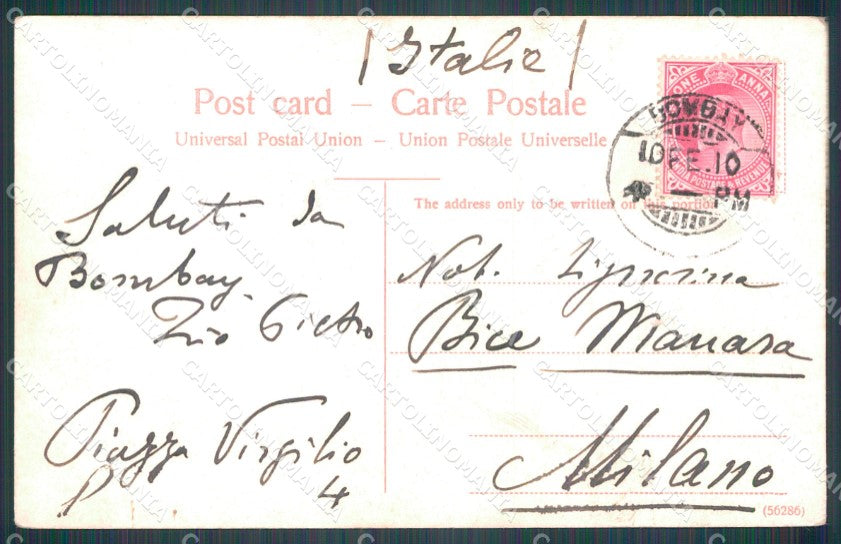 Italia
Post card – Carte Postale
Universal Postal Union – Union Postale Universelle
ONE ANNA
INDIA POSTAGE & REVENUE
10 DE. 10
PM
The address only to be written on this portion
Saluti da
Bombay
Zio Pietro
Piazza Virgilio
4
Nob. Signorina
Bice Manara
Milano
(56286)
CARTOLINOMANIA